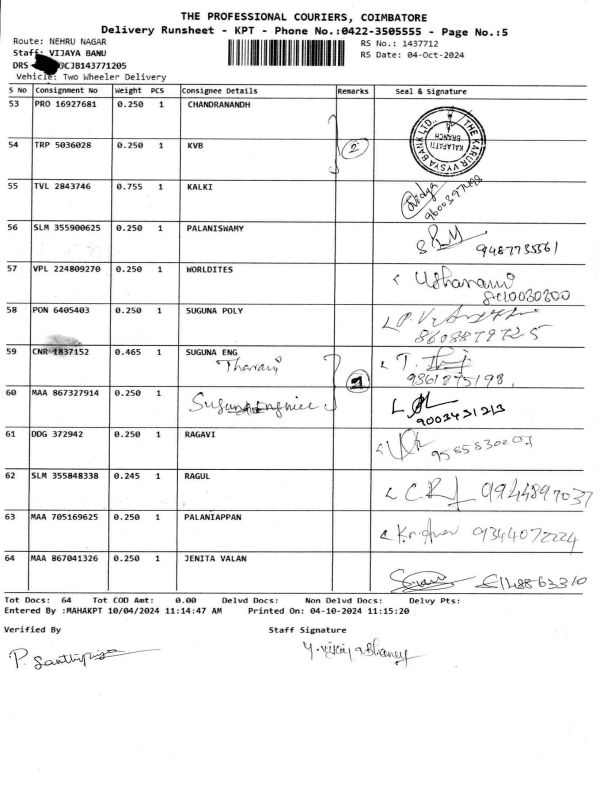 THE PROFESSIONAL COURIERS, COIMBATORE
Delivery Runsheet - KPT - Phone No.:0422-3505555 - Page No.:5
Route: NEHRU NAGAR RS No.: 1437712
Staff: VIJAYA BANU RS Date: 04-Oct-2024
DRS CJB143771205
Vehicle: Two Wheeler Delivery
S No Consignment No Weight PCS Consignee Details Remarks Seal & Signature
53 PRO 16927681 0.250 1 CHANDRANANDH
THE KARUR VYSYA BANK LTD.
KALAPATTI
BRANCH
54 TRP 5036028 0.250 1 KVB 2
55 TVL 2843746 0.755 1 KALKI Vidya
56 SLM 355900625 0.250 1 PALANISWAMY 9487735561
57 VPL 224809270 0.250 1 WORLDITES
58 PON 6405403 0.250 1 SUGUNA POLY 8608879725
59 CNR 1837152 0.465 1 SUGUNA ENG
Tharani 1 9361275198
60 MAA 867327914 0.250 1 9003431213
61 DDG 372942 0.250 1 RAGAVI
62 SLM 355848338 0.245 1 RAGUL 9944897037
63 MAA 705169625 0.250 1 PALANIAPPAN Krishna 9344072224
64 MAA 867041326 0.250 1 JENITA VALAN
Tot Docs: 64 Tot COD Amt: 0.00 Delvd Docs: Non Delvd Docs: Delvy Pts:
Entered By :MAHAKPT 10/04/2024 11:14:47 AM Printed On: 04-10-2024 11:15:20
Verified By Staff Signature